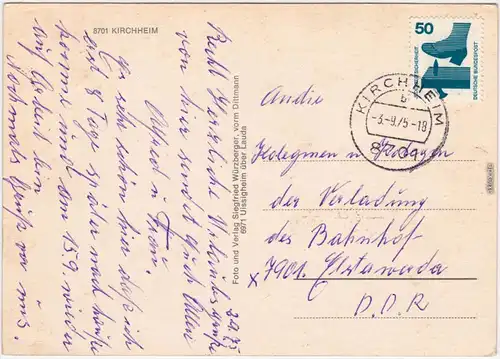 8701 KIRCHHEIM
2.9.75
Recht herzliche Urlaubsgrüße
von hier sendet Euch Allen
Alfred u. Frau.
Es ist schön hier daß ich
erst 8 Tage später nach Hause
komme und am 15.9. wieder
auf Arbeit bin
Nochmals Gruß von uns.
Foto und Verlag Siegfried Würzberger, vorm Dittmann
6971 Uissigheim über Lauda
50
DEUTSCHE BUNDESPOST
KIRCHHEIM
b
-3.-9.75-18
8701
An die
Kolleginnen u. Kollegen
der Verladung
des Bahnhof
x 7901 Elsterwerda
D.D.R